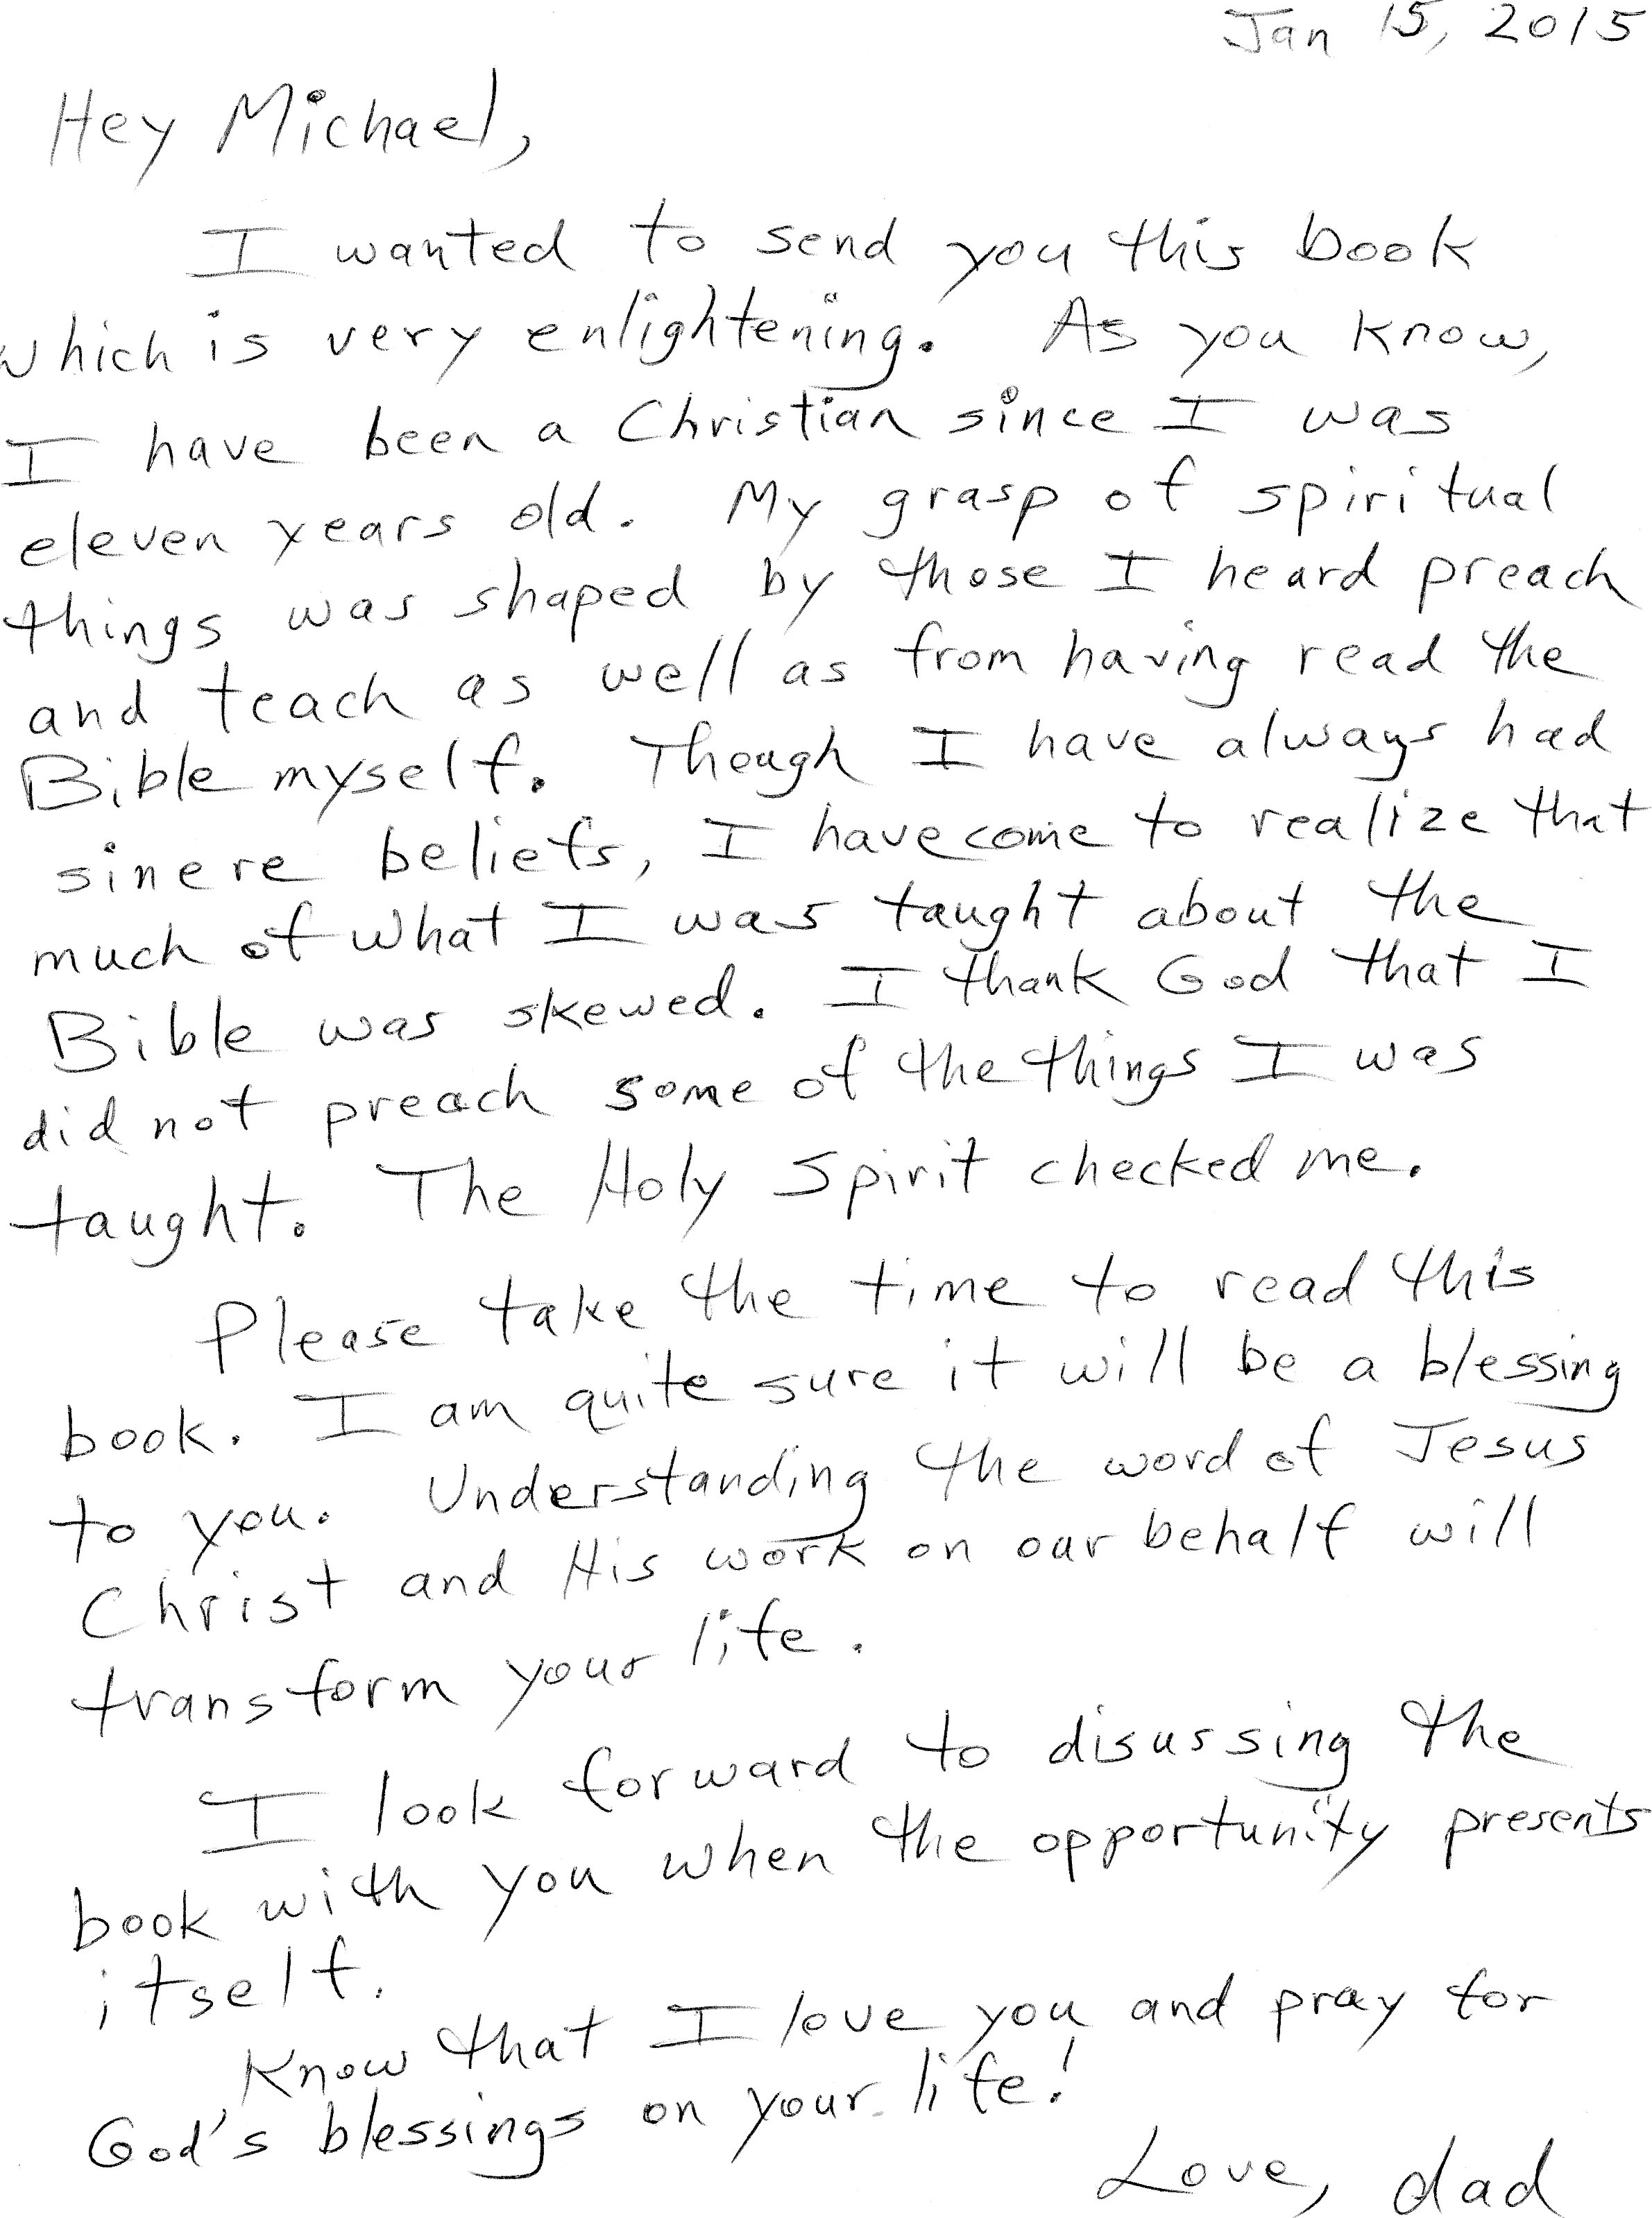 Jan 15, 2015
Hey Michael,
I wanted to send you this book
which is very enlightening. As you know,
I have been a Christian since I was
eleven years old. My grasp of spiritual
things was shaped by those I heard preach
and teach as well as from having read the
Bible myself. Though I have always had
sinere beliefs, I have come to realize that
much of what I was taught about the
Bible was skewed. I thank God that I
did not preach some of the things I was
taught. The Holy Spirit checked me.
Please take the time to read this
book. I am quite sure it will be a blessing
to you. Understanding the word of Jesus
Christ and His work on our behalf will
transform your life.
I look forward to disussing the
book with you when the opportunity presents
itself.
Know that I love you and pray for
God's blessings on your life!
Love, dad